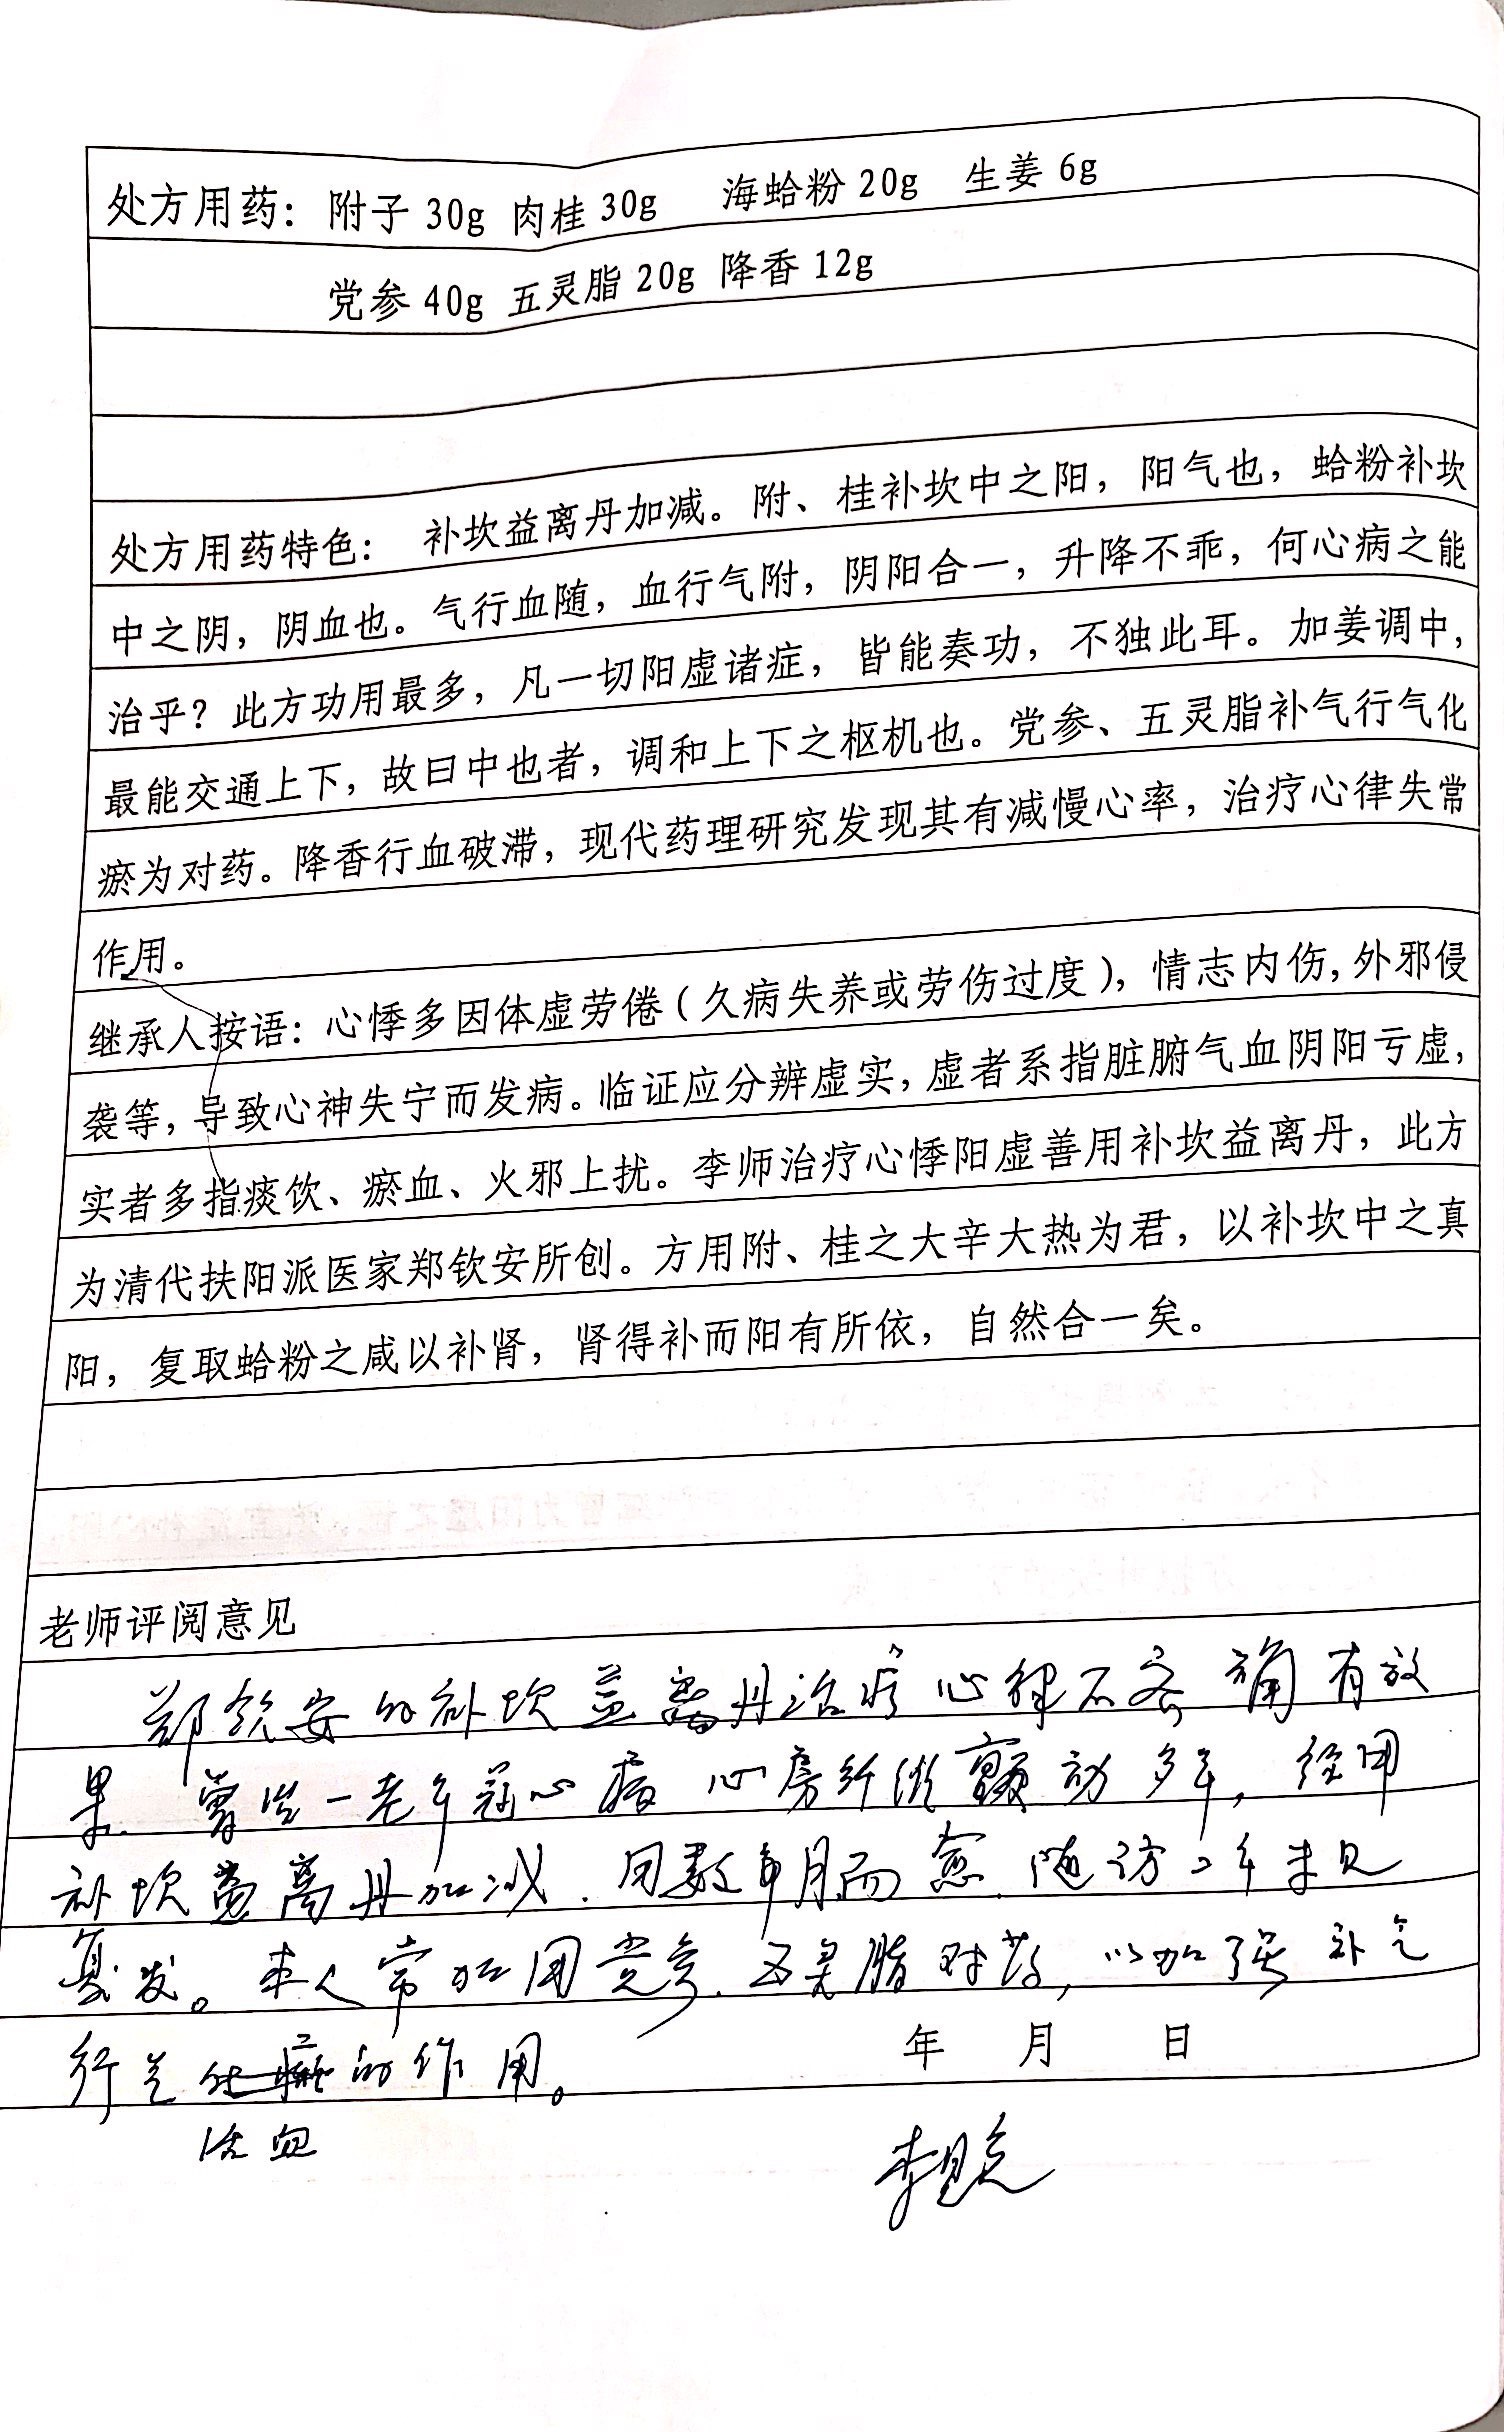 处方用药：附子 30g 肉桂 30g 海蛤粉 20g 生姜 6g
党参 40g 五灵脂 20g 降香 12g
处方用药特色： 补坎益离丹加减。附、桂补坎中之阳，阳气也，蛤粉补坎
中之阴，阴血也。气行血随，血行气附，阴阳合一，升降不乖，何心病之能
治乎？此方功用最多，凡一切阳虚诸症，皆能奏功，不独此耳。加姜调中，
最能交通上下，故曰中也者，调和上下之枢机也。党参、五灵脂补气行气化
瘀为对药。降香行血破滞，现代药理研究发现其有减慢心率，治疗心律失常
作用。
继承人按语：心悸多因体虚劳倦（久病失养或劳伤过度），情志内伤，外邪侵
袭等，导致心神失宁而发病。临证应分辨虚实，虚者系指脏腑气血阴阳亏虚，
实者多指痰饮、瘀血、火邪上扰。李师治疗心悸阳虚善用补坎益离丹，此方
为清代扶阳派医家郑钦安所创。方用附、桂之大辛大热为君，以补坎中之真
阳，复取蛤粉之咸以补肾，肾得补而阳有所依，自然合一矣。
老师评阅意见
郑钦安的补坎益离丹治疗心律不齐确有效
果。曾治一老年冠心病心房纤维颤动多年，经用
补坎益离丹加减．用数月而愈．随访2年未见
复发。本人常加用党参．五灵脂对药，以加强补气
行气化瘀的作用。
年 月 日
活血